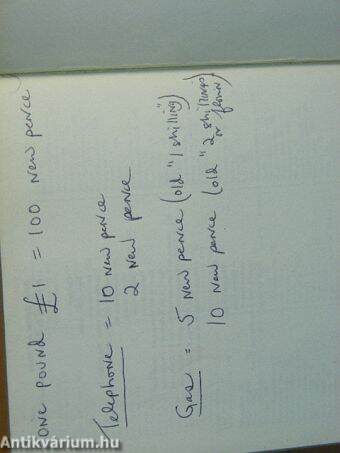 one pound £1 = 100 new pence
Telephone = 10 new pence
2 new pence
Gas = 5 new pence (old "1 shilling")
10 new pence (old "2 shillings
or florin)
Antikvárium.hu